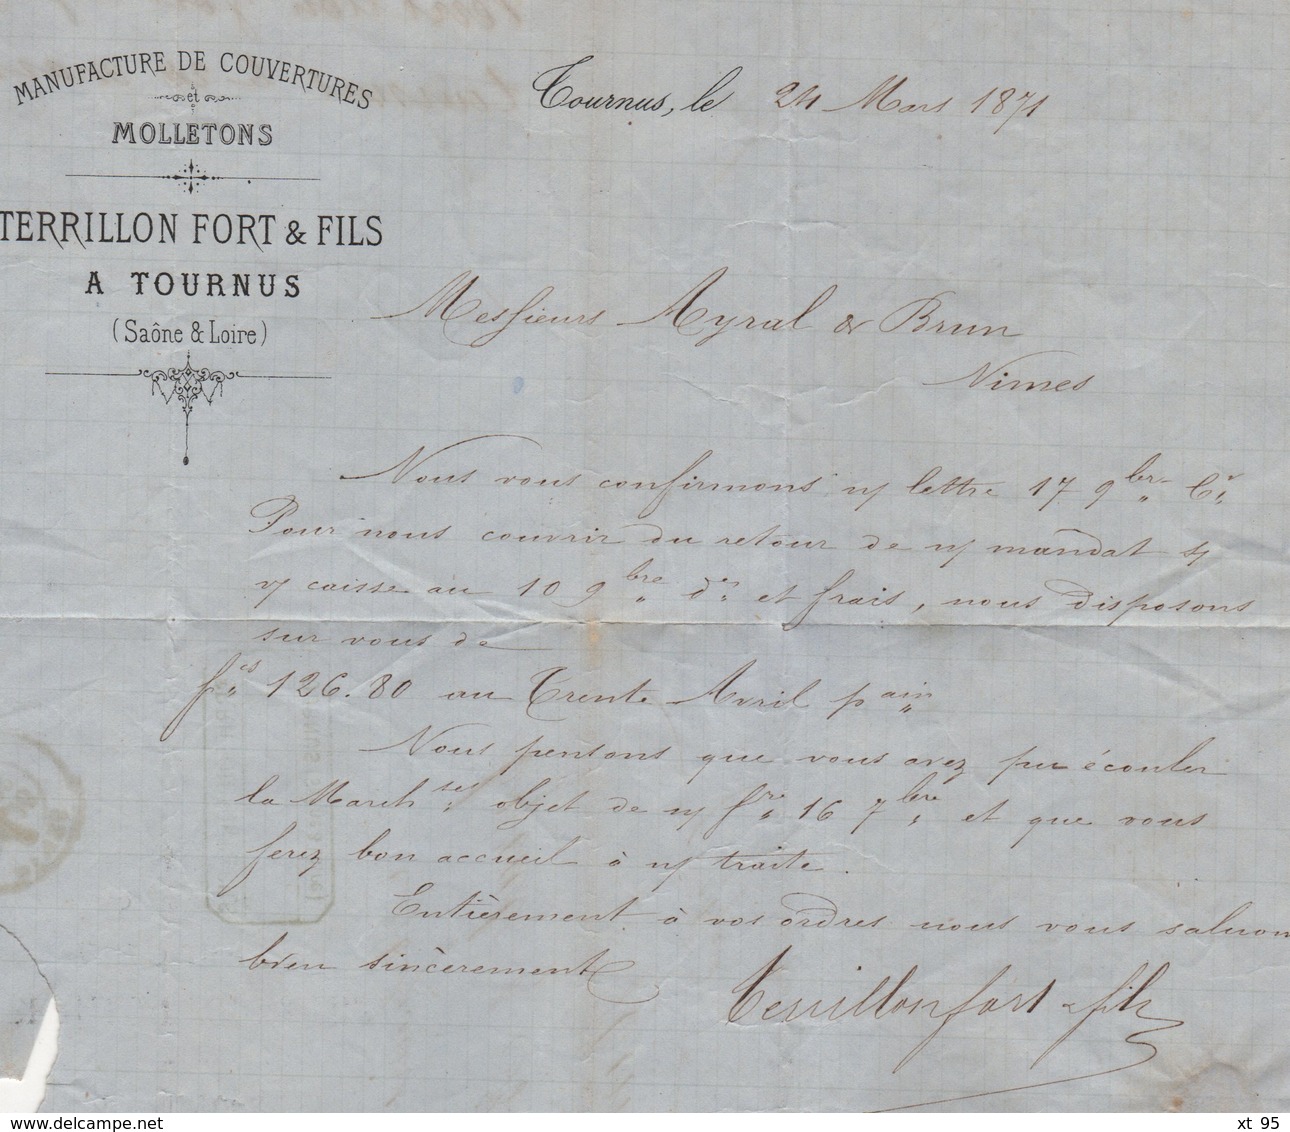 MANUFACTURE DE COUVERTURES
et
MOLLETONS
TERRILLON FORT & FILS
A TOURNUS
(Saône & Loire)
Tournus, le 24 Mars 1871
Messieurs Ayral & Brun
Nimes
Nous vous confirmons n/ lettre 17 9bre
Pour nous couvrir du retour de n/ mandat s/
v/ caisse au 10 9bre et frais, nous disposons
sur vous de
fcs 126.80 au Trente Avril pain
Nous pensons que vous avez pu écouler
la Marchses objet de n/ fre 16 7bre et que vous
ferez bon accueil à n/ traite.
Entièrement à vos ordres nous vous saluons
bien sincèrement
Terrillon fort & fils
xt 95